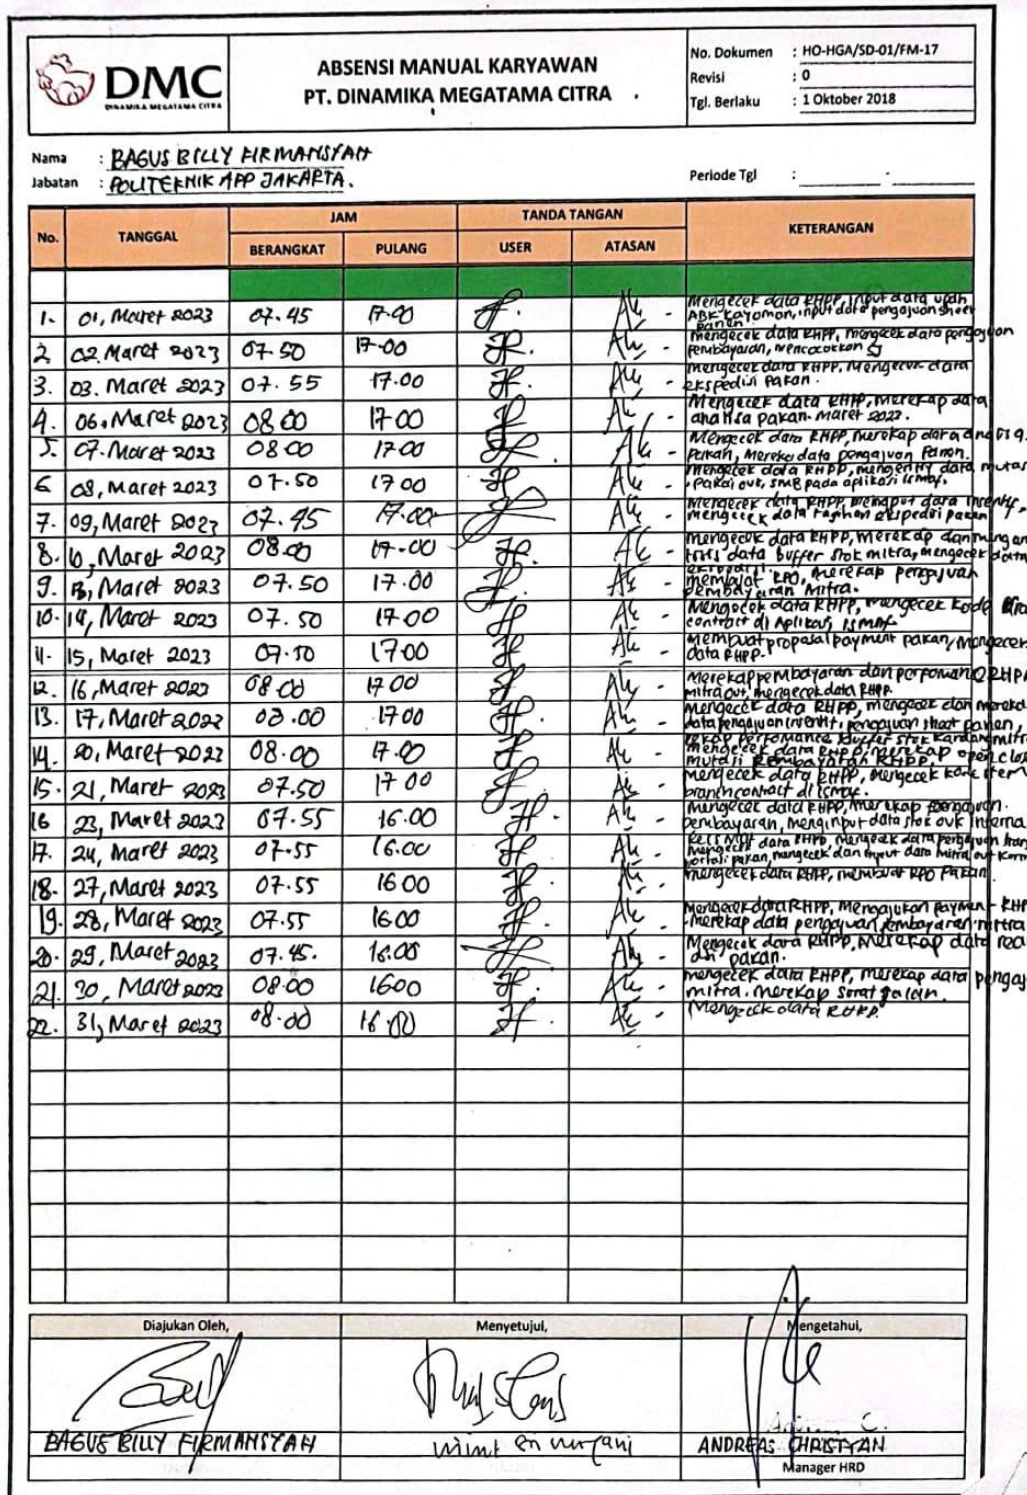 DMC
DINAMIKA MEGATAMA CITRA
ABSENSI MANUAL KARYAWAN
PT. DINAMIKA MEGATAMA CITRA
No. Dokumen : HO-HGA/SD-01/FM-17
Revisi : 0
Tgl. Berlaku : 1 Oktober 2018
Nama : BAGUS BILLY FIRMANSYAH
Jabatan : POLITEKNIK APP JAKARTA.
Periode Tgl : -
No. TANGGAL JAM TANDA TANGAN KETERANGAN
BERANGKAT PULANG USER ATASAN
1. 01, Maret 2023 07.45 17-00 Mengecek data RHPP, input data
input data pengajuan sheet
panen.
2. 02, Maret 2023 07.50 17-00 Mengecek data RHPP, mengecek data pengajuan
pembayaran, mencocokkan SJ
3. 03. Maret 2023 07.55 17.00 mengecek data RHPP, Mengecek data
ekspedisi pakan.
4. 06, Maret 2023 08 00 17 00 Mengecek data RHPP, Merekap data
analisa pakan. maret 2023.
5. 07. Maret 2023 08 00 17 00 Mengecek data RHPP, merekap data
Pakan, Mereka data pengajuan Panen.
6 08, Maret 2023 07.50 17 00 mengecek data RHPP, mengentry data mutas
pada aplikasi ismaf.
7. 09, Maret 2023 07.45 17.00 Mengecek data RHPP, data
mengecek data ekspedisi pakan
8. 10, Maret 2023 08.00 17-00 mengecek data RHPP, merekap dan
data buffer stok mitra, mengecek data
9. 13, Maret 2023 07.50 17.00 membuat RPO, merekap pengajuan
pembayaran Mitra.
10. 14, Maret 2023 07.50 17-00 Mengecek data RHPP, mengecek kode
contract di Aplikasi ismaf
11. 15, Maret 2023 07.50 17 00 Membuat proposal payment pakan, mengecek
data RHPP.
12. 16, Maret 2023 08 00 17 00 Merekap pembayaran dan
mitra out, mengecek data RHPP.
13. 17, Maret 2023 08.00 17 00 Mengecek data RHPP, mengecek dan mereka
data pengajuan insentif, pengajuan sheet panen,
14. 20, Maret 2023 08.00 17.00 rekap performance buffer stok kandang mitra
mengecek data RHPP, merekap
mutasi pembayaran RHPP.
15. 21, Maret 2023 07.50 17 00 mengecek data RHPP, mengecek kode item
branch contract di ismaf.
16 23, Maret 2023 07.55 16.00 mengecek data RHPP, merekap pengajuan
pembayaran, menginput data stok ovk interna
17. 24, Maret 2023 07.55 16.00 mengecek data RHPP, mengecek data pengajuan
pakan, mengecek dan input data mitra out
18. 27, Maret 2023 07.55 16 00 mengecek data RHPP, membuat RPO Pakan
19. 28, Maret 2023 07.55 16 00 Mengecek data RHPP, Mengajukan Payment RHP
merekap data pengajuan pembayaran mitra
20. 29, Maret 2023 07.45. 16.00 Mengecek data RHPP, merekap data
pakan.
21. 30, Maret 2023 08.00 16 00 mengecek data RHPP, merekap data pengaj
mitra. merekap surat jalan.
22. 31, Maret 2023 08.00 16.00 Mengecek data RHPP.
Diajukan Oleh, Menyetujui, Mengetahui,
BAGUS BILLY FIRMANSYAH ANDREAS CHRISTYAN
Manager HRD